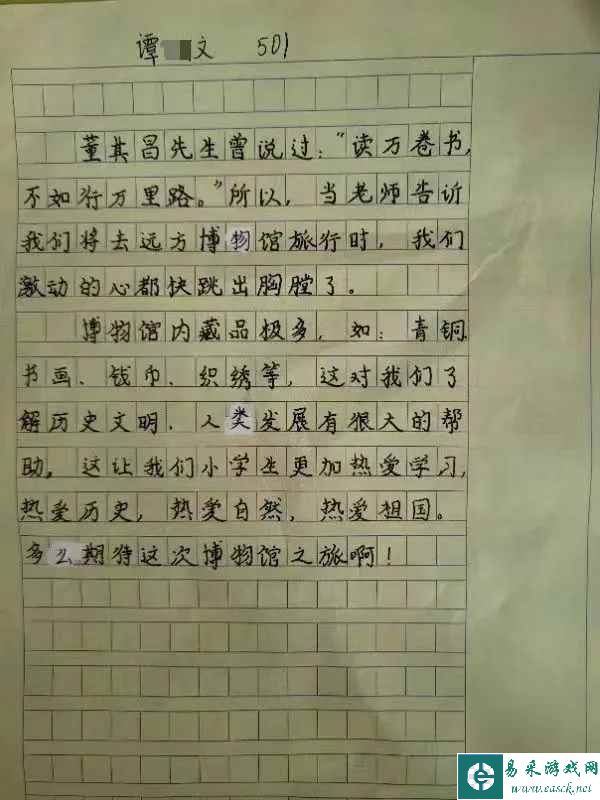 谭 文 501
董其昌先生曾说过:“读万卷书,
不如行万里路。”所以,当老师告诉
我们将去远方博物馆旅行时,我们
激动的心都快跳出胸膛了。
博物馆内藏品极多,如:青铜
书画、钱币、织绣等,这对我们了
解历史文明、人类发展有狠大的帮
助。这让我们小学生更加热爱学习,
热爱历史,热爱自然,热爱祖国。
多么期待这次博物馆之旅啊!
易采游戏网
www.easck.net